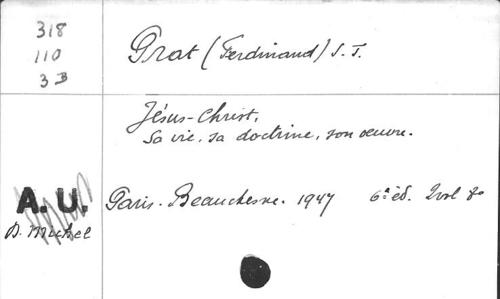 318
110
3 B
Prat (Ferdinand) S. J.
Jésus-Christ,
Sa vie, sa doctrine, son œuvre.
A. U.
Paris. Beauchesne. 1947 6e éd. 2vol 8o
D. Michel